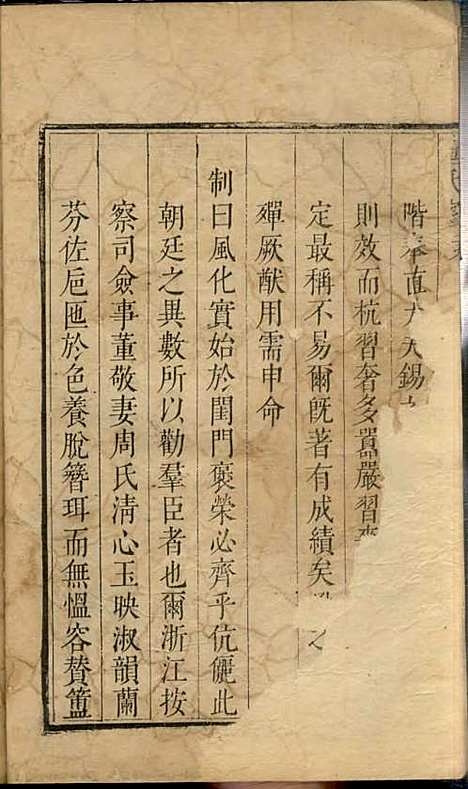 階奉直大夫錫
則效而杭習奢多嚚嚴習
定最稱不易爾既著有成績矣
殫厥猷用需申命
制曰風化實始於閨門褒榮必齊乎伉儷此
朝廷之異數所以勸羣臣者也爾浙江按
察司僉事董敬妻周氏清心玉映淑韻蘭
芬佐巵匜於色養脫簪珥而無慍容贊簠